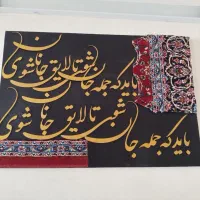 باید که جمله جان شوی تا لایق جانان شوی
باید که جمله جان شوی تا لایق جانان شوی